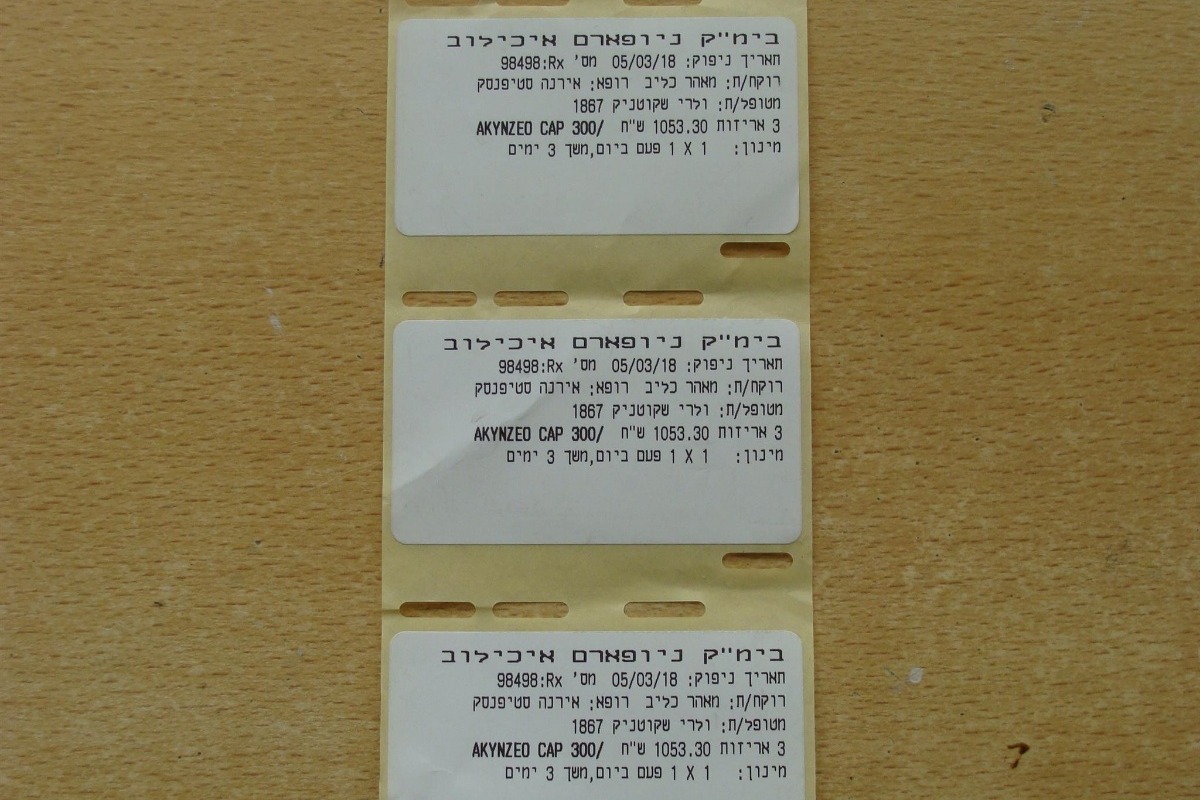 בימ"ק ניופארם איכילוב
תאריך ניפוק: 05/03/18 מס' Rx:98498
רוקח/ת: מאהר כליב רופא: אירנה סטיפנסק
מטופל/ת: ולרי שקוטניק 1867
3 אריזות 1053.30 ש"ח AKYNZEO CAP 300/
מינון: 1 X 1 פעם ביום,משך 3 ימים
בימ"ק ניופארם איכילוב
תאריך ניפוק: 05/03/18 מס' Rx:98498
רוקח/ת: מאהר כליב רופא: אירנה סטיפנסק
מטופל/ת: ולרי שקוטניק 1867
3 אריזות 1053.30 ש"ח AKYNZEO CAP 300/
מינון: 1 X 1 פעם ביום,משך 3 ימים
בימ"ק ניופארם איכילוב
תאריך ניפוק: 05/03/18 מס' Rx:98498
רוקח/ת: מאהר כליב רופא: אירנה סטיפנסק
מטופל/ת: ולרי שקוטניק 1867
3 אריזות 1053.30 ש"ח AKYNZEO CAP 300/
מינון: 1 X 1 פעם ביום,משך 3 ימים